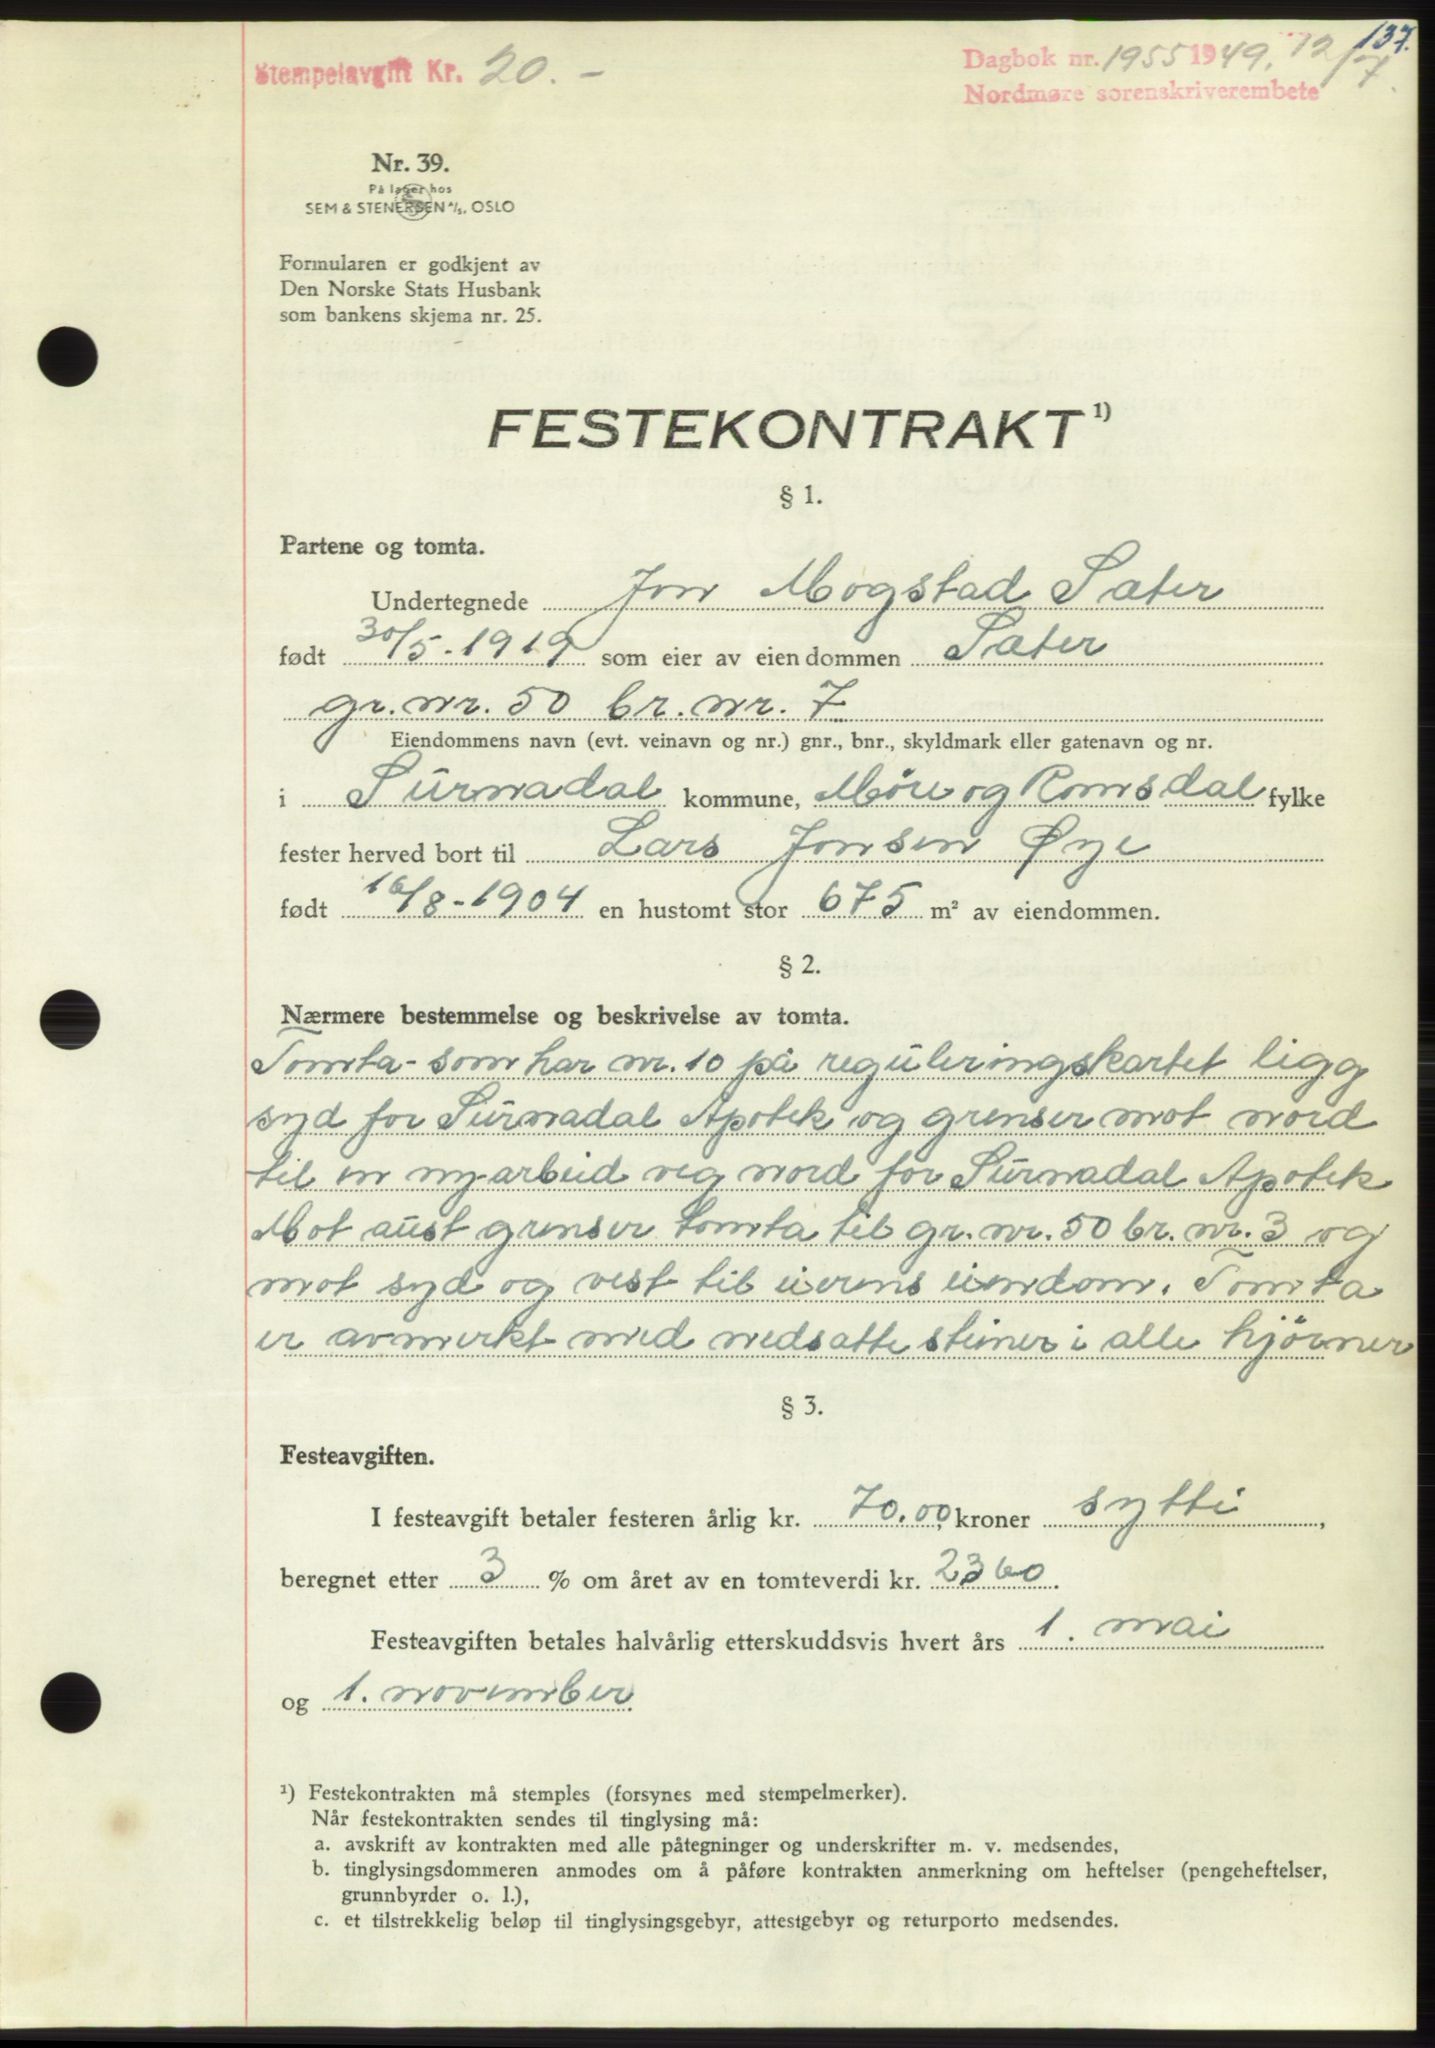 137.
Stempelavgift Kr. 20.-
Dagbok nr. 1955 1949. 12/7.
Nordmøre sorenskriverembete
Nr. 39.
På lager hos
SEM & STENERSEN A/S, OSLO
Formularen er godkjent av
Den Norske Stats Husbank
som bankens skjema nr. 25.
FESTEKONTRAKT 1)
§ 1.
Partene og tomta.
Undertegnede Jon Mogstad Sæter
født 30/5-1919 som eier av eiendommen Sæter
gr. nr. 50 br. nr. 7
Eiendommens navn (evt. veinavn og nr.) gnr., bnr., skyldmark eller gatenavn og nr.
i Surnadal kommune, Møre og Romsdal fylke
fester herved bort til Lars Jonsen Øye
født 16/8-1904 en hustomt stor 675 m² av eiendommen.
§ 2.
Nærmere bestemmelse og beskrivelse av tomta.
Tomta - som har nr. 10 på reguleringskartet ligg
syd for Surnadal Apotek og grenser mot nord
til en ny-arbeid veg nord for Surnadal Apotek
Mot aust grenser tomta til gr. nr. 50 br. nr. 3 og
mot syd og vest til eierens eiendom. Tomta
er avmerkt med nedsatte steiner i alle hjørner
§ 3.
Festeavgiften.
I festeavgift betaler festeren årlig kr. 70.00, kroner sytti,
beregnet etter 3 % om året av en tomteverdi kr. 2360.
Festeavgiften betales halvårlig etterskuddsvis hvert års 1. mai
og 1. november.
1) Festekontrakten må stemples (forsynes med stempelmerker).
Når festekontrakten sendes til tinglysing må:
a. avskrift av kontrakten med alle påtegninger og underskrifter m. v. medsendes,
b. tinglysingsdommeren anmodes om å påføre kontrakten anmerkning om heftelser (pengeheftelser,
grunnbyrder o. l.),
c. et tilstrekkelig beløp til tinglysingsgebyr, attestgebyr og returporto medsendes.